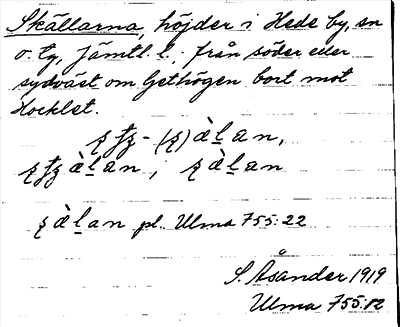 Skällarna, höjder i Hede by, sn
o. tg, Jämtl. l., från söder eller
sydväst om Gethögen bort mot
Hocklet.
pl. Ulma 755:22
S. Åsander 1919
Ulma 755:12